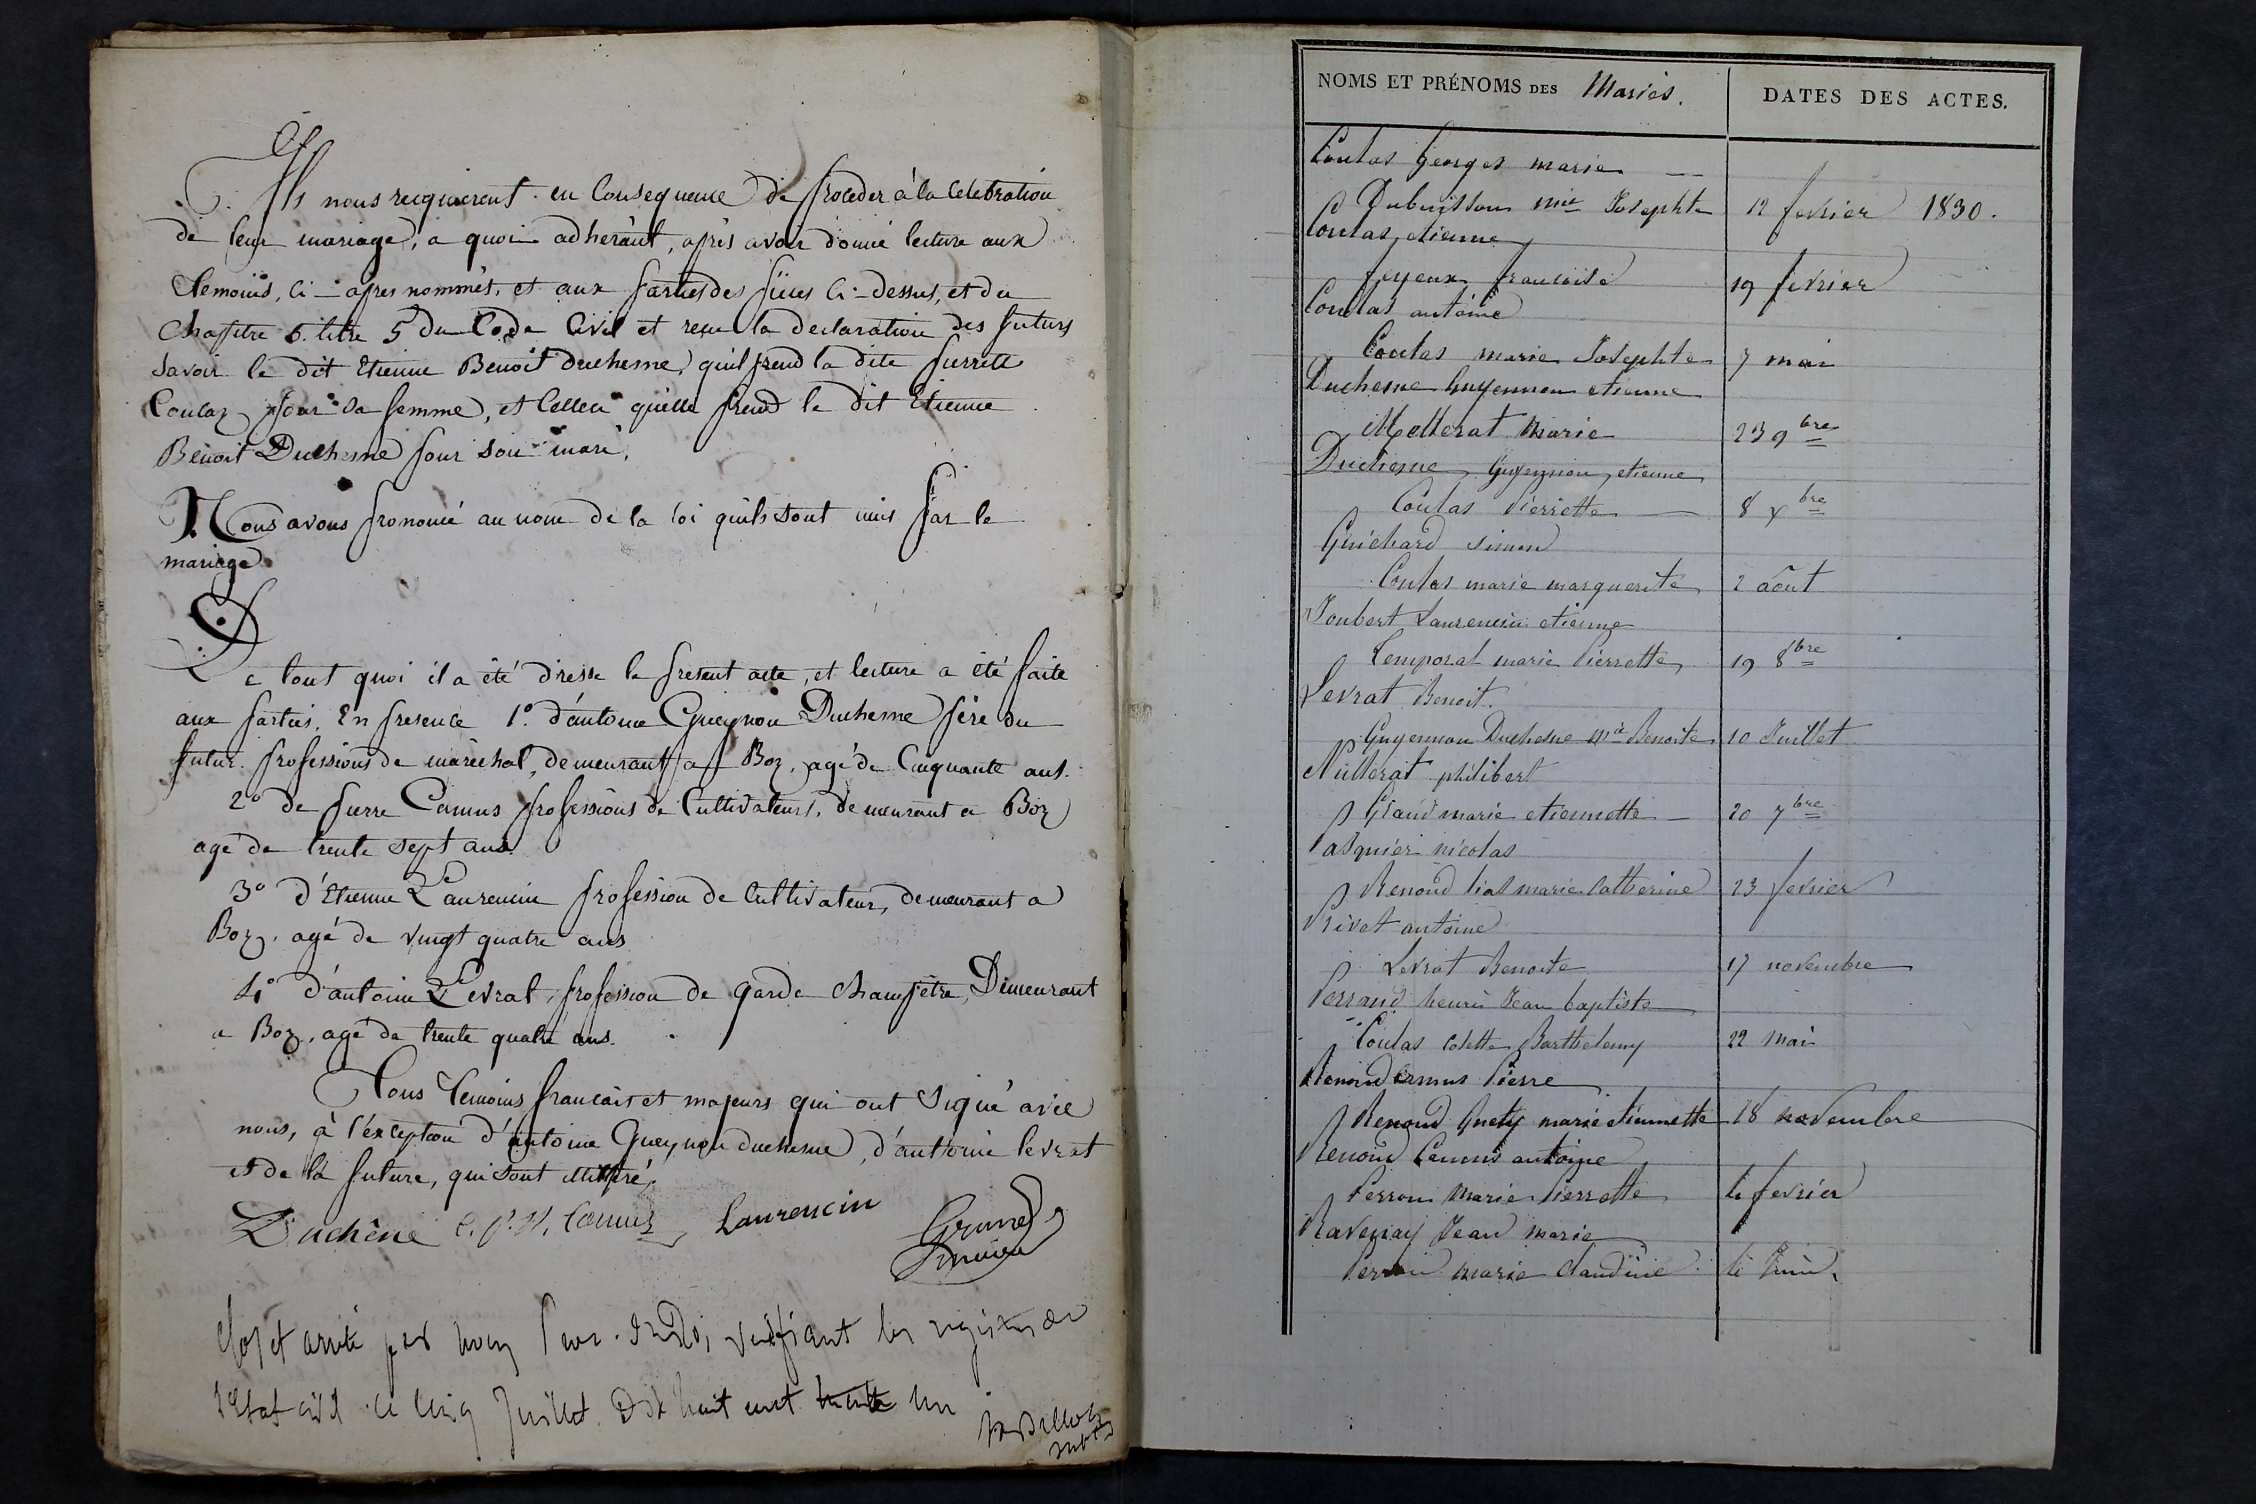 Ils nous requierent en Consequence de proceder à la Celebration
de leur mariage, a quoi adherant, après avoir donné lecture aux
Temoins, Ci-apres nommés, et aux parties des pièces Ci-dessus, et du
Chapitre 6. titre 5 du Code Civil et reçu la declaration des futurs
Savoir le dit Etienne Benoit Duchesne, qu'il prend la dite pierrette
Coulaz pour Sa femme, et Celleci qu'elle prend le dit Etienne
Benoit Duchesne pour Son mari,
Nous avons prononcé au nom de la loi qu'ils sont unis par le
mariage
De tout quoi il a été dressé le present acte, et lecture a été faite
aux parties, En presence 1º. d'antoine Gueynon Duchesne père du
futur professions de maréchal, demeurant a Boz, agé de Cinquante ans.
2º de pierre Camus professions de Cultivateurs, demeurant a Boz
agé de trente sept ans.
3º d'Etienne Laurencin profession de Cultivateur, demeurant a
Boz, agé de vingt quatre ans
4º d'antoine Levrat, profession de garde champêtre, Demeurant
a Boz, agé de trente quatre ans.
Tous Temoins francais et majeurs qui ont Signé avec
nous, à l'exception d'antoine Gueynon duchesne, d'antoine levrat
et de la future, qui sont
Duchêne C. P. Camus Laurencin
Clos et arrêté par nous verifiant les registres de
l'Etat civil ce Cinq Juillet Dix huit cent trente un
NOMS ET PRÉNOMS DES Mariés. DATES DES ACTES.
Coulas Georges marie
Dubuisson mie Josephte 12 fevrier 1830.
Coulas etienne
Joyeux francoise 19 fevrier
Coulas antoine
Coulas marie Josephte 7 mai
Duchesne Guyennon etienne
Mollerat Marie 23 9bre
Duchesne Guyennon etienne
Coulas Pierrette 8 Xbre
Guichard Simon
Coulas marie marguerite 2 août
Joubert Laurencin etienne
Temporal marie Pierrette 19 8bre
Levrat Benoit.
Guyennon Duchesne mie Benoite 10 Juillet
Nullerat philibert
Grand marie etiennette 20 7bre
Pasquier nicolas
Renoud lias marie Catherine 23 fevrier
Rivet antoine
Levrat Benoite 17 novembre
Perraud henri Jean baptiste
Coulas Colette Barthelemy 22 Mai
Renoud Camus Pierre
Renoud Guety marie etiennette 18 novembre
Renoud Camus antoine
Perron Marie Pierrette 4 fevrier
Ravenay Jean Marie
Perron Marie Claudine 4 Juin.